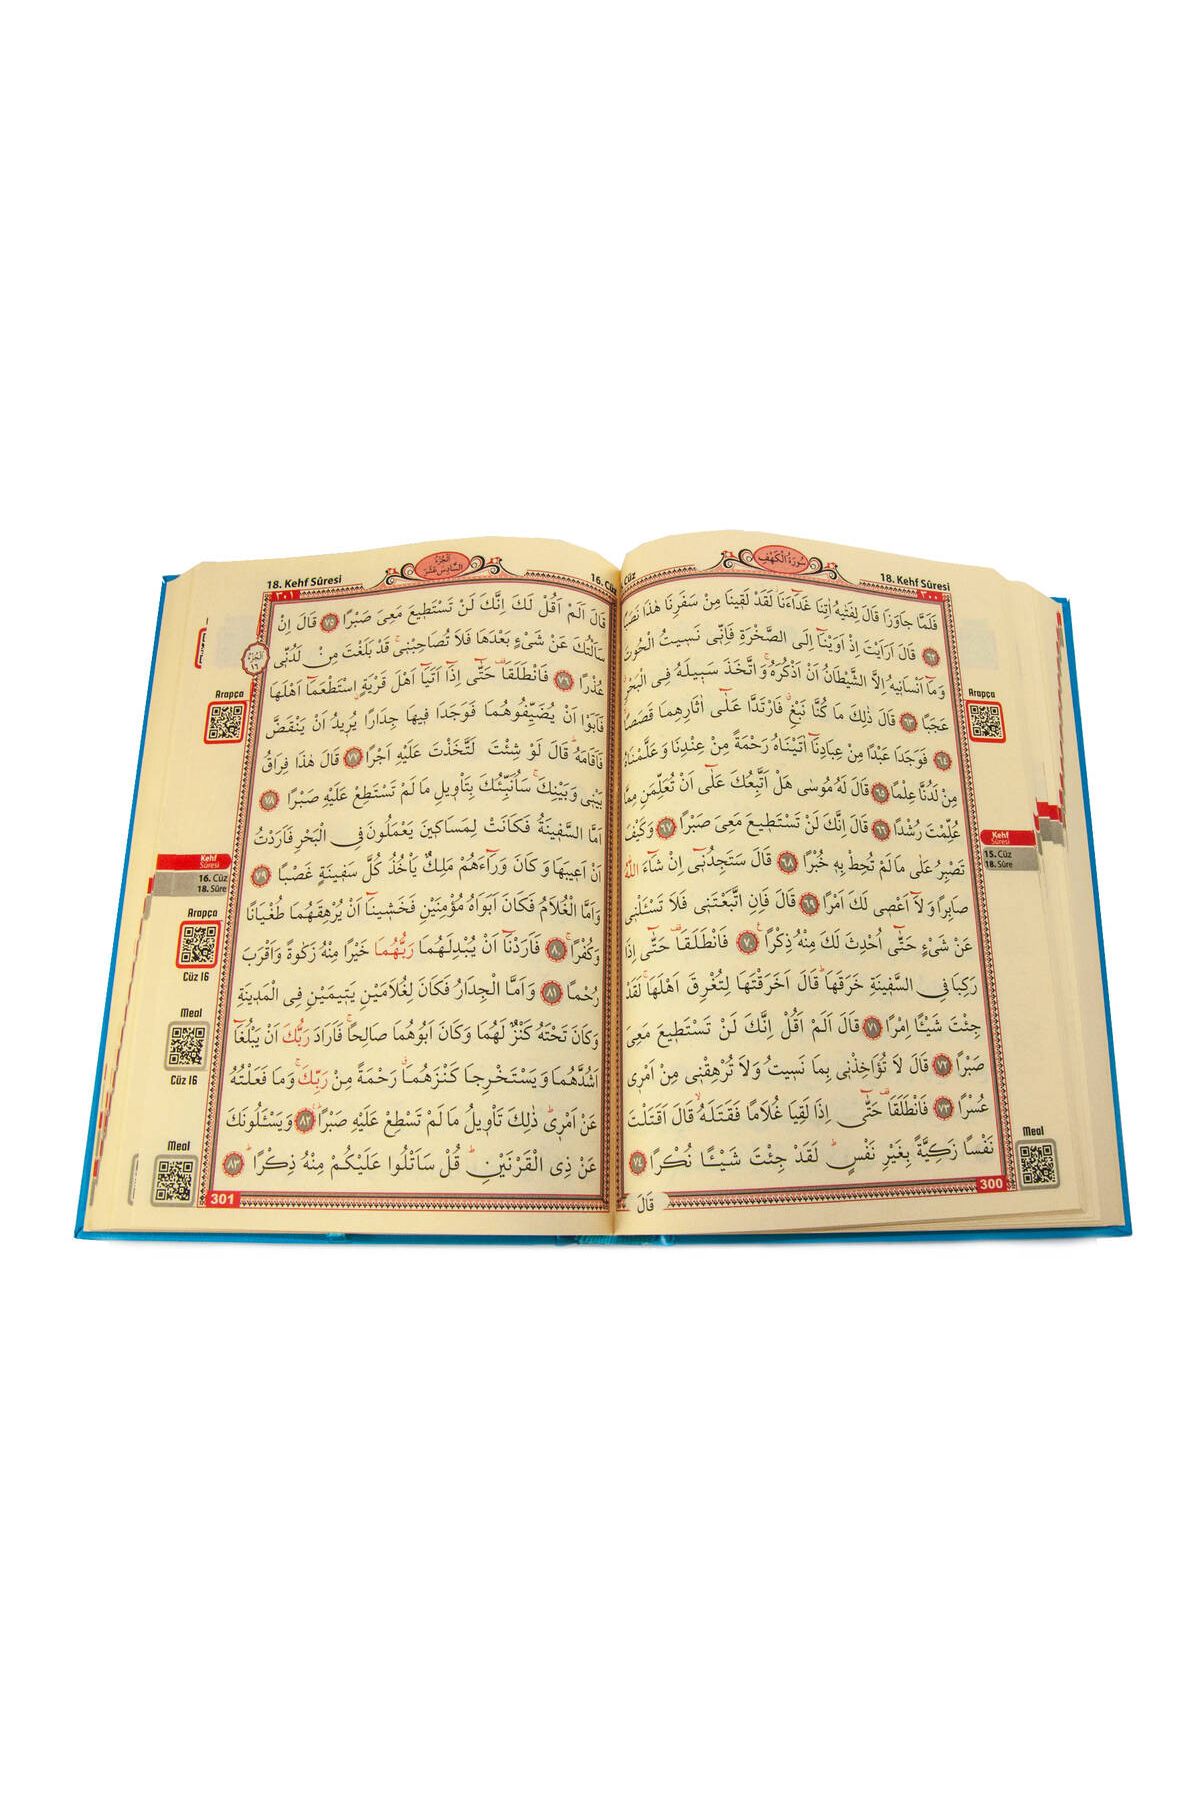 18. Kehf Sûresi
سُورَةُ الْكَهْفِ
Cüz
٣٠٠
فَلَمَّا جَاوَزَا قَالَ لِفَتٰيهُ اٰتِنَا غَدَٓاءَنَاۘ لَقَدْ لَقٖينَا مِنْ سَفَرِنَا هٰذَا نَصَبًا
﴿٦٢﴾ قَالَ اَرَاَيْتَ اِذْ اَوَيْنَٓا اِلَى الصَّخْرَةِ فَاِنّٖي نَسٖيتُ الْحُوتَ
وَمَٓا اَنْسَانٖيهُ اِلَّا الشَّيْطَانُ اَنْ اَذْكُرَهُۚ وَاتَّخَذَ سَبٖيلَهُ فِي الْبَحْرِ
عَجَبًا ﴿٦٣﴾ قَالَ ذٰلِكَ مَا كُنَّا نَبْغِۗ فَارْتَدَّا عَلٰٓى اٰثَارِهِمَا قَصَصًا
﴿٦٤﴾ فَوَجَدَا عَبْدًا مِنْ عِبَادِنَٓا اٰتَيْنَاهُ رَحْمَةً مِنْ عِنْدِنَا وَعَلَّمْنَاهُ
مِنْ لَدُنَّا عِلْمًا ﴿٦٥﴾ قَالَ لَهُ مُوسٰى هَلْ اَتَّبِعُكَ عَلٰٓى اَنْ تُعَلِّمَنِ مِمَّا
عُلِّمْتَ رُشْدًا ﴿٦٦﴾ قَالَ اِنَّكَ لَنْ تَسْتَطٖيعَ مَعِيَ صَبْرًا ﴿٦٧﴾ وَكَيْفَ
تَصْبِرُ عَلٰى مَا لَمْ تُحِطْ بِهٖ خُبْرًا ﴿٦٨﴾ قَالَ سَتَجِدُنٖٓي اِنْ شَٓاءَ اللّٰهُ
صَابِرًا وَلَٓا اَعْصٖي لَكَ اَمْرًا ﴿٦٩﴾ قَالَ فَاِنِ اتَّبَعْتَنٖي فَلَا تَسْـَٔلْنٖي
عَنْ شَيْءٍ حَتّٰٓى اُحْدِثَ لَكَ مِنْهُ ذِكْرًاۚ ﴿٧٠﴾ فَانْطَلَقَاۗ حَتّٰٓى اِذَا
رَكِبَا فِي السَّفٖينَةِ خَرَقَهَاۜ قَالَ اَخَرَقْتَهَا لِتُغْرِقَ اَهْلَهَاۚ لَقَدْ
جِئْتَ شَيْـًٔا اِمْرًا ﴿٧١﴾ قَالَ اَلَمْ اَقُلْ اِنَّكَ لَنْ تَسْتَطٖيعَ مَعِيَ
صَبْرًا ﴿٧٢﴾ قَالَ لَا تُؤَاخِذْنٖي بِمَا نَسٖيتُ وَلَا تُرْهِقْنٖي مِنْ اَمْرٖي
عُسْرًا ﴿٧٣﴾ فَانْطَلَقَاۗ حَتّٰٓى اِذَا لَقِيَا غُلَامًا فَقَتَلَهُۙ قَالَ اَقَتَلْتَ
نَفْسًا زَكِيَّةً بِغَيْرِ نَفْسٍۜ لَقَدْ جِئْتَ شَيْـًٔا نُكْرًا ﴿٧٤﴾
300
قَالَ
Arapça
Kehf
Sûresi
15. Cüz
18. Sûre
Meal
16. Cüz
اَلْجُزْءُ
السَّادِسَ عَشَرَ
18. Kehf Sûresi
٣٠١
قَالَ اَلَمْ اَقُلْ لَكَ اِنَّكَ لَنْ تَسْتَطٖيعَ مَعِيَ صَبْرًا ﴿٧٥﴾ قَالَ اِنْ
سَاَلْتُكَ عَنْ شَيْءٍ بَعْدَهَا فَلَا تُصَاحِبْنٖيۚ قَدْ بَلَغْتَ مِنْ لَدُنّٖي
عُذْرًا ﴿٧٦﴾ فَانْطَلَقَاۗ حَتّٰٓى اِذَٓا اَتَيَٓا اَهْلَ قَرْيَةٍۨ اسْتَطْعَمَٓا اَهْلَهَا
فَاَبَوْا اَنْ يُضَيِّفُوهُمَا فَوَجَدَا فٖيهَا جِدَارًا يُرٖيدُ اَنْ يَنْقَضَّ
فَاَقَامَهُۜ قَالَ لَوْ شِئْتَ لَتَّخَذْتَ عَلَيْهِ اَجْرًا ﴿٧٧﴾ قَالَ هٰذَا فِرَاقُ
بَيْنٖي وَبَيْنِكَۚ سَاُنَبِّئُكَ بِتَأْوٖيلِ مَا لَمْ تَسْتَطِعْ عَلَيْهِ صَبْرًا ﴿٧٨﴾
اَمَّا السَّفٖينَةُ فَكَانَتْ لِمَسَاكٖينَ يَعْمَلُونَ فِي الْبَحْرِ فَاَرَدْتُ
اَنْ اَعٖيبَهَا وَكَانَ وَرَٓاءَهُمْ مَلِكٌ يَأْخُذُ كُلَّ سَفٖينَةٍ غَصْبًا ﴿٧٩﴾
وَاَمَّا الْغُلَامُ فَكَانَ اَبَوَاهُ مُؤْمِنَيْنِ فَخَشٖينَٓا اَنْ يُرْهِقَهُمَا طُغْيَانًا
وَكُفْرًاۚ ﴿٨٠﴾ فَاَرَدْنَٓا اَنْ يُبْدِلَهُمَا رَبُّهُمَا خَيْرًا مِنْهُ زَكٰوةً وَاَقْرَبَ
رُحْمًا ﴿٨١﴾ وَاَمَّا الْجِدَارُ فَكَانَ لِغُلَامَيْنِ يَتٖيمَيْنِ فِي الْمَدٖينَةِ
وَكَانَ تَحْتَهُ كَنْزٌ لَهُمَا وَكَانَ اَبُوهُمَا صَالِحًاۚ فَاَرَادَ رَبُّكَ اَنْ يَبْلُغَٓا
اَشُدَّهُمَا وَيَسْتَخْرِجَا كَنْزَهُمَاۗ رَحْمَةً مِنْ رَبِّكَۚ وَمَا فَعَلْتُهُ
عَنْ اَمْرٖيۜ ذٰلِكَ تَأْوٖيلُ مَا لَمْ تَسْطِعْ عَلَيْهِ صَبْرًاۜ ﴿٨٢﴾ وَيَسْـَٔلُونَكَ
عَنْ ذِي الْقَرْنَيْنِۜ قُلْ سَاَتْلُوا عَلَيْكُمْ مِنْهُ ذِكْرًاۜ ﴿٨٣﴾
301
اَلْجُزْءُ
١٦
Arapça
Kehf
Sûresi
16. Cüz
18. Sûre
Arapça
Cüz 16
Meal
Cüz 16
Meal